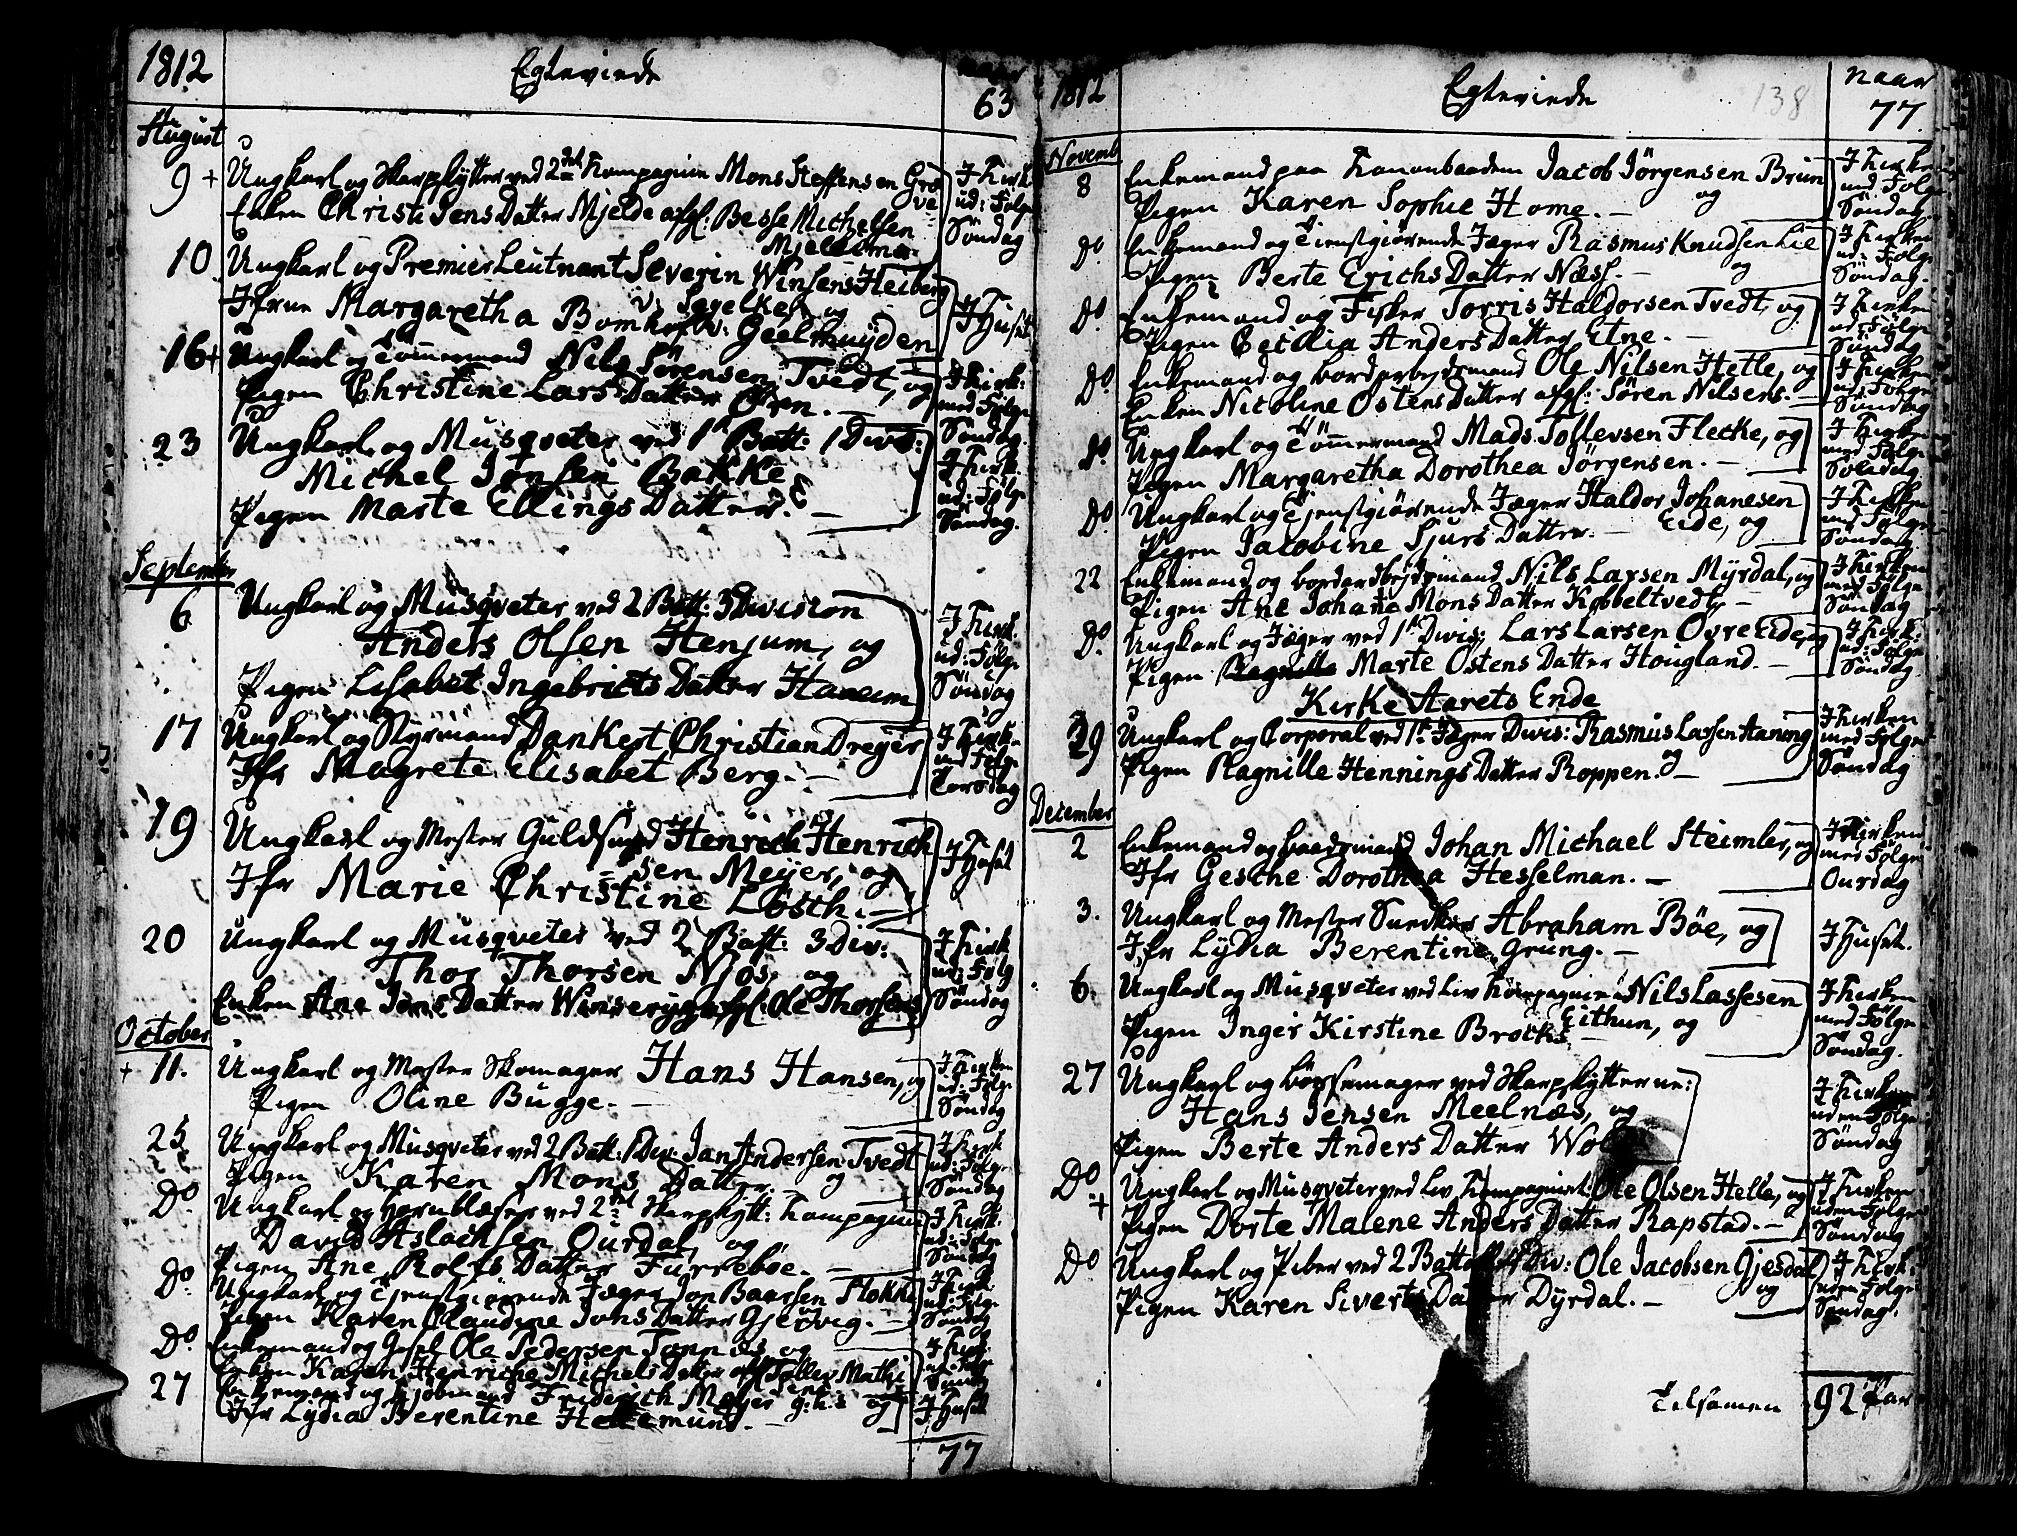 1812 Egteviede naar
63
August
9 + Ungkarl og Skarpskytter ved 2den Kompagnie Mons Steffensen Grove
Enken Christi Jens Datter Mjelde afgl: Besse Michelsen
Mjeldemo
I Kirk: ud: Følge Søndag
10 Ungkarl og Premier Leutnant Severin Winsens Heiberg
Jfrue Margaretha Bomhoff v: Geelmuyden
I Huset
16 + Ungkarl og Tømmermand Nils Sørensen Tvedt, og
Pigen Christine Lars Datter Øren. –
I Kirk: med Følge Søndag.
23 Ungkarl og Musqveter ved 1 Batt: 1 Divis:
Michel Jonsen Bakke
Pigen Marte Ellings Datter. –
I Kirk: ud: Følg Søndag.
September
6 Ungkarl og Musqveter ved 2 Batt: 3 Division
Anders Olsen Henjum, og
Pigen Lisabet Ingebricts Datter Haaeim
I Kirk: ud: Følge Søndag
17 Ungkarl og Styrmand Dankert Christian Dreyer
Jfr Magrete Elisabet Berg. –
I Kirke med Følge Torsdag
19 Ungkarl og Mester Guldsmed Henrich Henrich
sen Meyer, og
Jfr Marie Christine Lösch. –
I Huset
20 Ungkarl og Musqveter ved 2 Batt: 3 Div:
Thor Thorsen Njos, og
Enken Ane Jens Datter afgl: Ole Thorsens
I Kirk ud: Følg Søndag
October
+ 11. Ungkarl og Mester Skomager Hans Hansen, og
Pigen Oline Bugge. –
I Kirken ud: Følge Søndag
25 Ungkarl og Musqveter ved 2 Batt: 1 Div: Jan Andersen Tvedt
Pigen Karen Mons Datter og
I Kirk ud: Følge Søndag
Do Ungkarl og Hornblæser ved 2den Skarpskytt: Kompagnie
David Aslachsen Ourdal, og
Pigen Ane Rolfs Datter Furrebøe. –
I Kirk: ud: Følge Søndag
Do. Ungkarl og Tjenstgiørende Jæger Jon Baarsen Flokke
Pigen Karen Claudine Johs Datter Gjervig. – og
I Kirk: ud: Følge Søndag
Do. Enkemand og Ole Pedersen Tannæs og
Enken Karen Henriche Michels Datter afgl Tollev Mathi
I Kirk: ud: Følge Søndag
27 Enkemand og Kjøbmand Friderich Meyer og
Jfr Lydia Berentine Hellemund.
I Huset
77
1812 Egteviede 138 naar
77.
Novemb
8 Enkemand paa Kanonbaaden Jacob Jörgensen Brun
Pigen Karen Sophie Home. – og
I Kirken med Følge Søndag
Do Enkemand og Tienstgiørende Jæger Rasmus Knudsen Lie
Pigen Berte Erichs Datter Næss. – og
I Kirken ud: Følge Søndag
Do. Enkemand og Fisker Torris Haldorsen Tvedt, og
Pigen Cecilia Anders Datter Etne. –
I Kirken ud: Følge Søndag
Do. Enkemand og bordarbejdsmand Ole Nilsen Helle, og
Enken Nicoline Ostens Datter afgl: Søren Nilsens. –
I Kirken ud: Følge Søndag
Do. Ungkarl og Tømmermand Mads Tollevsen Flecke, og
Pigen Margaretha Dorothea Jörgensen. –
I Kirken med Følge Søndag
Do. Ungkarl og Tjenstgiörende Jæger Haldor Johanesen
Eide, og
Pigen Jacobine Sjurs Datter. –
I Kirken med Følge Søndag
22 Enkemand og bordarbejdsmand Nils Larsen Myrdal, og
Pigen Ane Johane Mons Datter Kobbeltvedt –
I Kirken med Følge Søndag
Do. Ungkarl og Jæger ved 1ste Divis: Lars Larsen Ovre Eide, og
Pigen Marte Ostens Datter Hougland. –
I Kirk: ud: Følge Søndag
Kirke Aarets Ende
29 Ungkarl og Corporal ved 1ste Jæger Divis: Rasmus Larsen Haning
Pigen Ragnille Hennings Datter Roppen. og –
I Kirken med Følge Søndag
December
2 Enkemand og baadsmand Johan Michael Steimler, og
Jfr Gesche Dorothea Hesselman. –
I Kirken med Følge Onsdag
3. Ungkarl og Mester Snedker Abraham Böe, og
Jfr Lydia Berentine Grung. –
I Huset.
6. Ungkarl og Musqveter ved Liv Kompagniet Nils Lassesen
Eithun, og
Pigen Inger Kirstine Brochs
I Kirken med Følge Søndag.
27 Ungkarl og bössemager ved Skarpskytterne:
Hans Jensen Meelnæs, og
Pigen Berte Anders Datter
I Kirken uden Følge Søndag
Do + Ungkarl og Musqveter ved Liv Kompagniet Ole Olsen Helle, og
Pigen Dorte Malene Anders Datter Rapstad. –
I Kirken uden Følge Søndag
Do Ungkarl og Piber ved 2 Batt Div: Ole Jacobsen Gjesdal
Pigen Karen Siverts Datter Dyrdal. – og
I Kirk: uden Følge Søndag.
Tilsamen 92 Par